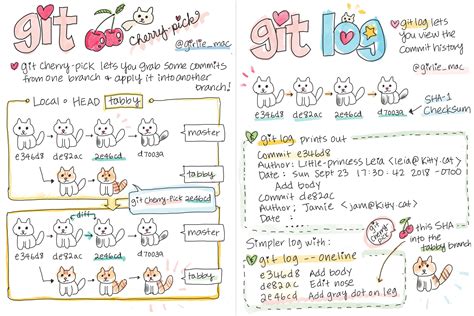 git cherry-pick
@girlie_mac
git cherry-pick lets you grab some commits
from one branch & apply it into another
branch!
Local • HEAD tabby
master
e346d8 de82ac 2e46cd d7003a
tabby
git cherry-pick 2e46cd
diff
master
e346d8 de82ac 2e46cd d7003a
tabby
git log
git log lets
you view the
commit history
@girlie_mac
SHA-1
Checksum
e346d8 de82ac 2e46cd
git log prints out
Commit e346d8
Author: Little-princess Leia <leia@kitty.cat>
Date : Sun Sept 23 17:30:42 2018 -0700
Add body
Commit de82ac
Author: Jamie <jam@kitty.cat>
Date : ....
git cherry-pick
this SHA
into the
tabby branch
Simpler log with:
git log --oneline
e346d8 Add body
de82ac Edit nose
2e46cd Add gray dot on leg